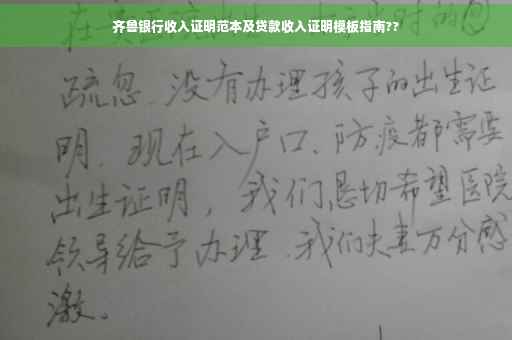 齐鲁银行收入证明范本及贷款收入证明模板指南??
疏忽、没有办理孩子的出生证
明、现在入户口、防疫都需要
出生证明，我们恳切希望医院
领导给予办理、我们夫妻万分感
激。